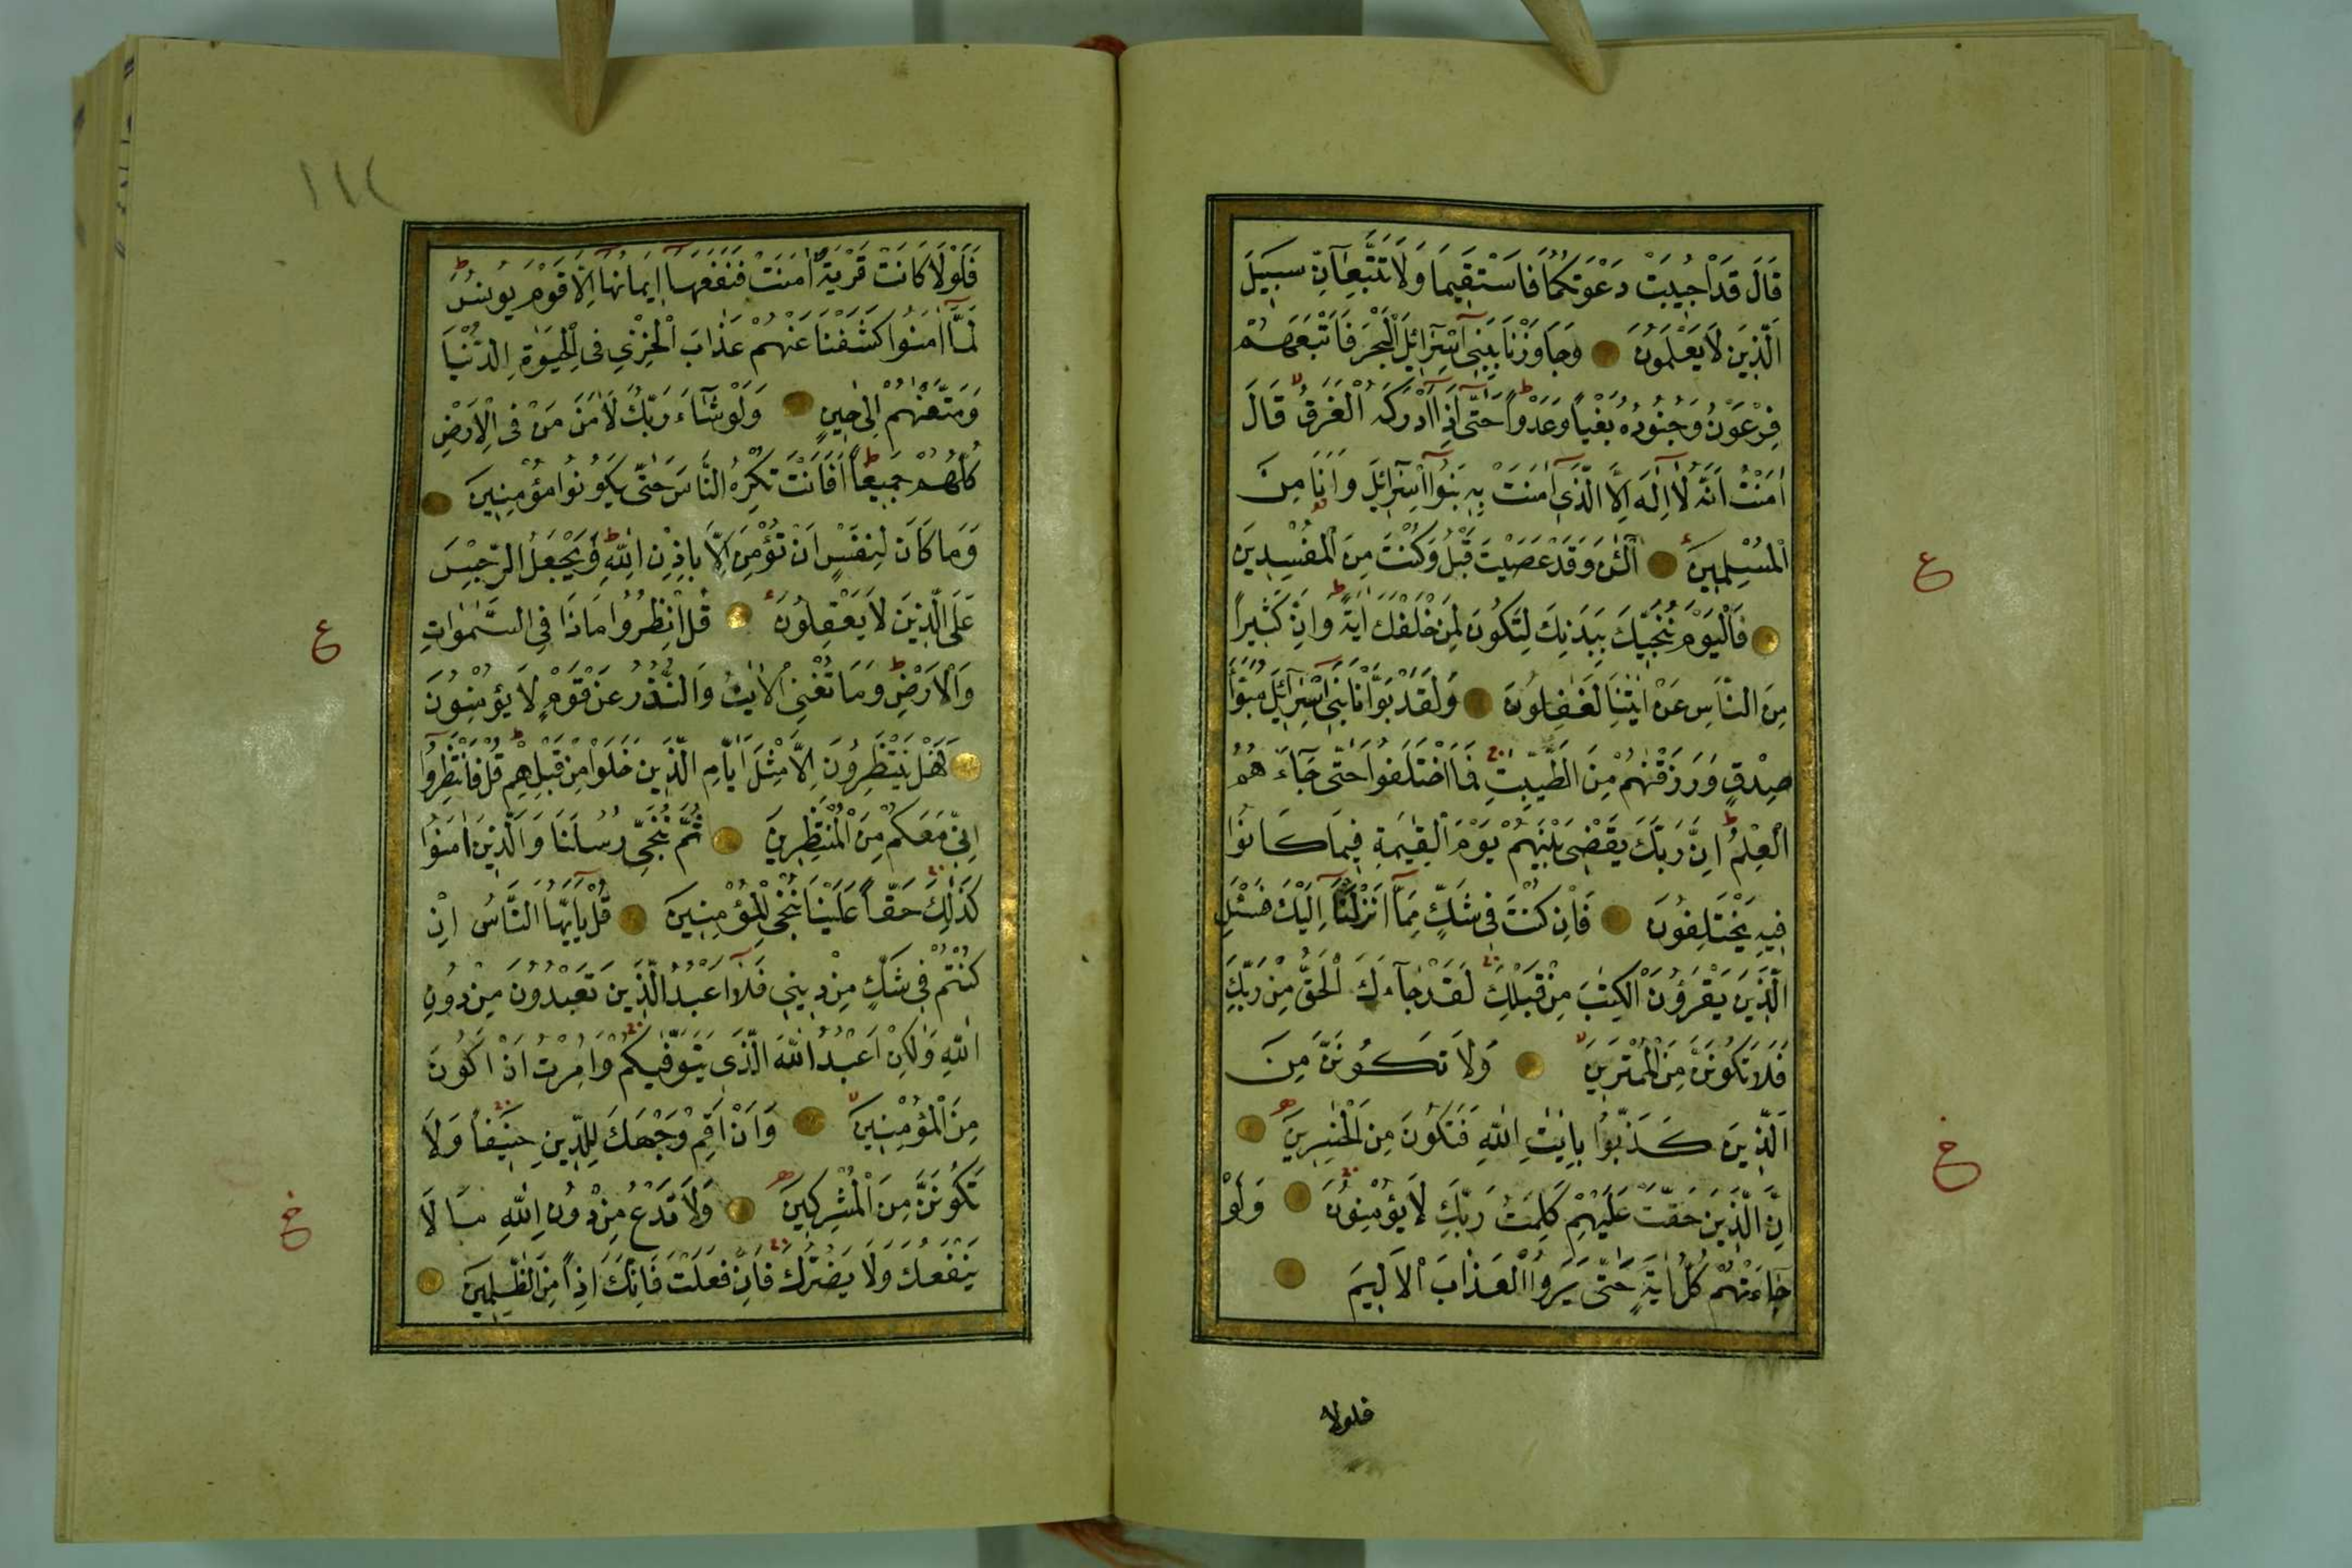 قَالَ قَدْ اُجِيبَتْ دَعْوَتُكُمَا فَاسْتَقِيمَا وَلَا تَتَّبِعَآنِّ سَبِيلَ
الَّذِينَ لَا يَعْلَمُونَ وَجَاوَزْنَا بِبَنِىٓ اِسْرَٓائِلَ الْبَحْرَ فَاَتْبَعَهُمْ
فِرْعَوْنُ وَجُنُودُهُ بَغْياً وَعَدْواً حَتّٰٓى اِذَٓا اَدْرَكَهُ الْغَرَقُ قَالَ
اٰمَنْتُ اَنَّهُ لَٓا اِلٰهَ اِلَّا الَّذِٓى اٰمَنَتْ بِهِ بَنُٓوا اِسْرَٓائِلَ وَاَنَا مِنَ
الْمُسْلِمِينَ آلْـٰٔنَ وَقَدْ عَصَيْتَ قَبْلُ وَكُنْتَ مِنَ الْمُفْسِدِينَ
فَالْيَوْمَ نُنَجِّيكَ بِبَدَنِكَ لِتَكُونَ لِمَنْ خَلْفَكَ اٰيَةً وَاِنَّ كَثِيراً
مِنَ النَّاسِ عَنْ اٰيٰتِنَا لَغٰفِلُونَ وَلَقَدْ بَوَّأْنَا بَنِىٓ اِسْرَٓائِلَ مُبَوَّأَ
صِدْقٍ وَرَزَقْنٰهُمْ مِنَ الطَّيِّبٰتِ فَمَا اخْتَلَفُوا حَتّٰى جَٓاءَهُمُ
الْعِلْمُ اِنَّ رَبَّكَ يَقْضِى بَيْنَهُمْ يَوْمَ الْقِيٰمَةِ فِيمَا كَانُوا
فِيهِ يَخْتَلِفُونَ فَاِنْ كُنْتَ فِى شَكٍّ مِمَّٓا اَنْزَلْنَٓا اِلَيْكَ فَسْـَٔلِ
الَّذِينَ يَقْرَؤُنَ الْكِتٰبَ مِنْ قَبْلِكَ لَقَدْ جَٓاءَكَ الْحَقُّ مِنْ رَبِّكَ
فَلَا تَكُونَنَّ مِنَ الْمُمْتَرِينَ وَلَا تَكُونَنَّ مِنَ
الَّذِينَ كَذَّبُوا بِاٰيٰتِ اللّٰهِ فَتَكُونَ مِنَ الْخٰسِرِينَ
اِنَّ الَّذِينَ حَقَّتْ عَلَيْهِمْ كَلِمَتُ رَبِّكَ لَا يُؤْمِنُونَ وَلَوْ
جَٓاءَتْهُمْ كُلُّ اٰيَةٍ حَتّٰى يَرَوُا الْعَذَابَ الْاَلِيمَ
فلولا
ع
خ
١٤٤
فَلَوْلَا كَانَتْ قَرْيَةٌ اٰمَنَتْ فَنَفَعَهَٓا اِيمَانُهَٓا اِلَّا قَوْمَ يُونُسَ
لَمَّٓا اٰمَنُوا كَشَفْنَا عَنْهُمْ عَذَابَ الْخِزْىِ فِى الْحَيٰوةِ الدُّنْيَا
وَمَتَّعْنٰهُمْ اِلٰى حِينٍ وَلَوْ شَٓاءَ رَبُّكَ لَاٰمَنَ مَنْ فِى الْاَرْضِ
كُلُّهُمْ جَمِيعاً اَفَاَنْتَ تُكْرِهُ النَّاسَ حَتّٰى يَكُونُوا مُؤْمِنِينَ
وَمَا كَانَ لِنَفْسٍ اَنْ تُؤْمِنَ اِلَّا بِاِذْنِ اللّٰهِ وَيَجْعَلُ الرِّجْسَ
عَلَى الَّذِينَ لَا يَعْقِلُونَ قُلِ انْظُرُوا مَاذَا فِى السَّمٰوَاتِ
وَالْاَرْضِ وَمَا تُغْنِى الْاٰيٰتُ وَالنُّذُرُ عَنْ قَوْمٍ لَا يُؤْمِنُونَ
فَهَلْ يَنْتَظِرُونَ اِلَّا مِثْلَ اَيَّامِ الَّذِينَ خَلَوْا مِنْ قَبْلِهِمْ قُلْ فَانْتَظِرُٓوا
اِنِّى مَعَكُمْ مِنَ الْمُنْتَظِرِينَ ثُمَّ نُنَجِّى رُسُلَنَا وَالَّذِينَ اٰمَنُوا
كَذٰلِكَ حَقّاً عَلَيْنَا نُنْجِ الْمُؤْمِنِينَ قُلْ يَٓا اَيُّهَا النَّاسُ اِنْ
كُنْتُمْ فِى شَكٍّ مِنْ دِينِى فَلَٓا اَعْبُدُ الَّذِينَ تَعْبُدُونَ مِنْ دُونِ
اللّٰهِ وَلٰكِنْ اَعْبُدُ اللّٰهَ الَّذِى يَتَوَفّٰيكُمْ وَاُمِرْتُ اَنْ اَكُونَ
مِنَ الْمُؤْمِنِينَ وَاَنْ اَقِمْ وَجْهَكَ لِلدِّينِ حَنِيفاً وَلَا
تَكُونَنَّ مِنَ الْمُشْرِكِينَ وَلَا تَدْعُ مِنْ دُونِ اللّٰهِ مَا لَا
يَنْفَعُكَ وَلَا يَضُرُّكَ فَاِنْ فَعَلْتَ فَاِنَّكَ اِذاً مِنَ الظّٰلِمِينَ
ع
خ